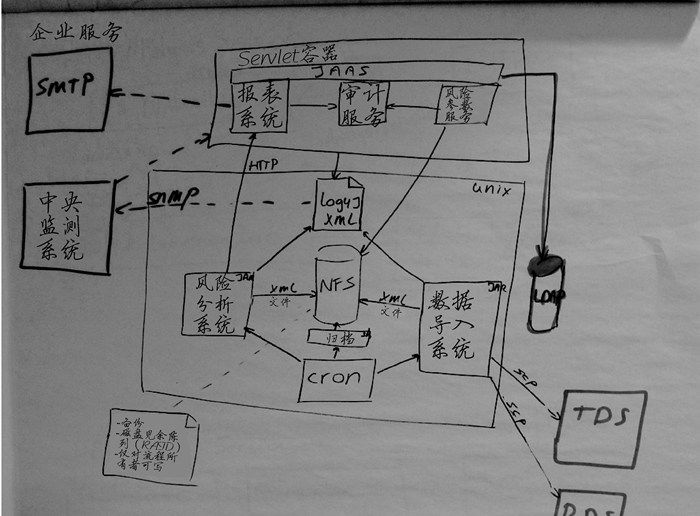 企业服务
Servlet容器
JAAS
SMTP
报表
系统
审计
服务
风险
参数
服务
HTTP
unix
SNMP
中央
监测
系统
log4J
XML
JAR
风险
分析
系统
XML
文件
NFS
XML
文件
JAR
数据
导入
系统
LDAP
归档
cron
SCP
SCP
TDS
-备份
-磁盘冗余阵
列(RAID)
-仅对流程所
有者可写